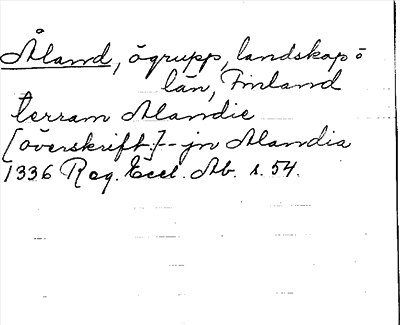 Åland, ögrupp, landskap o
län, Finland
terram Alandie
[överskrift:]-- jn Alandia
1336 Reg. Eccl. Ab. s. 54.